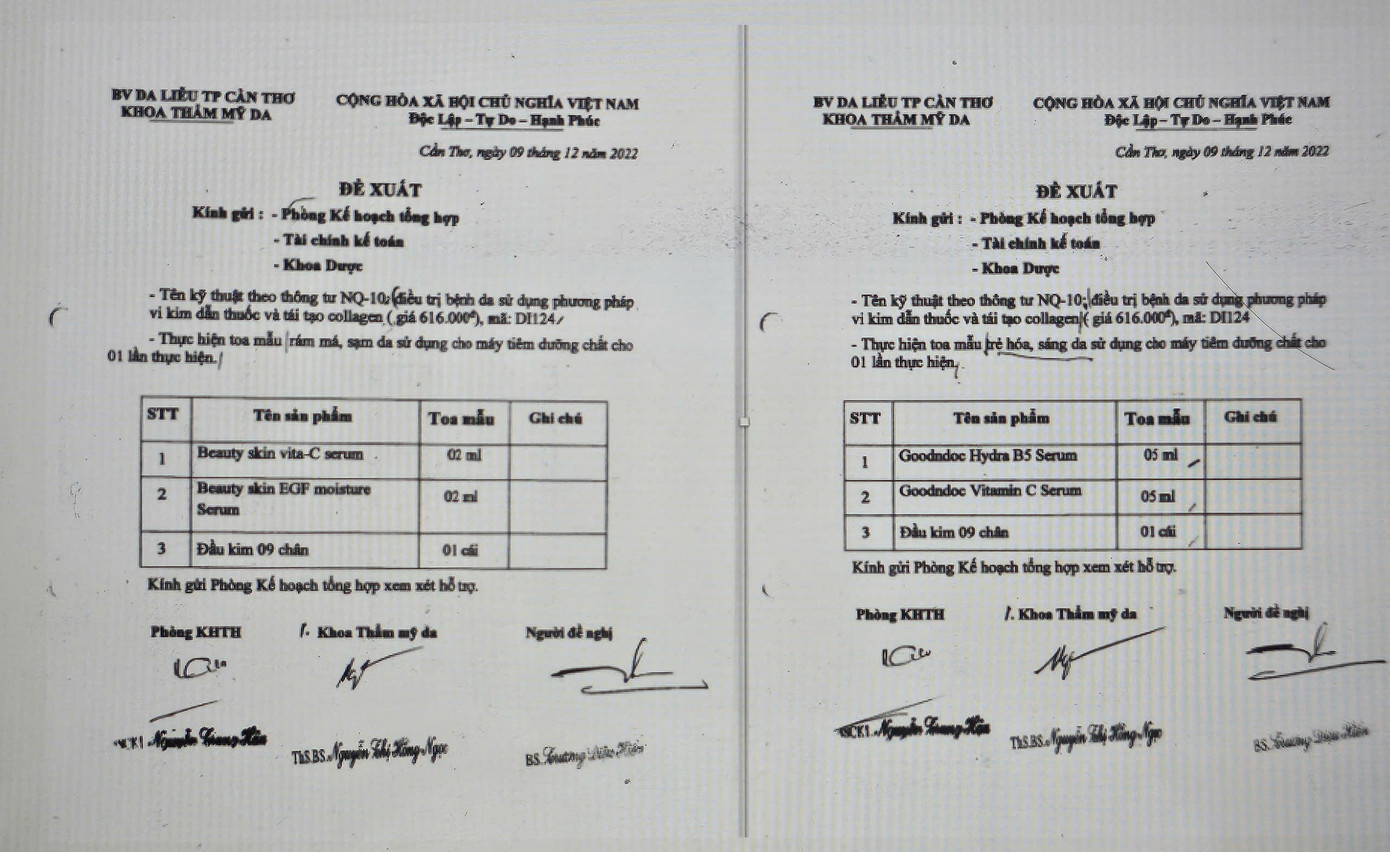 BV DA LIỄU TP CẦN THƠ
KHOA THẨM MỸ DA
CỘNG HÒA XÃ HỘI CHỦ NGHĨA VIỆT NAM
Độc Lập – Tự Do – Hạnh Phúc
Cần Thơ, ngày 09 tháng 12 năm 2022
ĐỀ XUẤT
Kính gửi : - Phòng Kế hoạch tổng hợp
- Tài chính kế toán
- Khoa Dược
- Tên kỹ thuật theo thông tư NQ-10: điều trị bệnh da sử dụng phương pháp
vi kim dẫn thuốc và tái tạo collagen ( giá 616.000đ), mã: DI124
- Thực hiện toa mẫu rám má, sạm da sử dụng cho máy tiêm dưỡng chất cho
01 lần thực hiện.
STT Tên sản phẩm Toa mẫu Ghi chú
1 Beauty skin vita-C serum 02 ml
2 Beauty skin EGF moisture 02 ml
Serum
3 Đầu kim 09 chân 01 cái
Kính gửi Phòng Kế hoạch tổng hợp xem xét hỗ trợ.
Phòng KHTH Khoa Thẩm mỹ da Người đề nghị
Nguyễn Trung Hân ThS.BS. Nguyễn Thị Hồng Ngọc BS. Trương Diệu Hiền
BV DA LIỄU TP CẦN THƠ
KHOA THẨM MỸ DA
CỘNG HÒA XÃ HỘI CHỦ NGHĨA VIỆT NAM
Độc Lập – Tự Do – Hạnh Phúc
Cần Thơ, ngày 09 tháng 12 năm 2022
ĐỀ XUẤT
Kính gửi : - Phòng Kế hoạch tổng hợp
- Tài chính kế toán
- Khoa Dược
- Tên kỹ thuật theo thông tư NQ-10: điều trị bệnh da sử dụng phương pháp
vi kim dẫn thuốc và tái tạo collagen ( giá 616.000đ), mã: DI124
- Thực hiện toa mẫu trẻ hóa, sáng da sử dụng cho máy tiêm dưỡng chất cho
01 lần thực hiện.
STT Tên sản phẩm Toa mẫu Ghi chú
1 Goodndoc Hydra B5 Serum 05 ml
2 Goodndoc Vitamin C Serum 05 ml
3 Đầu kim 09 chân 01 cái
Kính gửi Phòng Kế hoạch tổng hợp xem xét hỗ trợ.
Phòng KHTH Khoa Thẩm mỹ da Người đề nghị
BSCK1. Nguyễn Trung Hân ThS.BS. Nguyễn Thị Hồng Ngọc BS. Trương Diệu Hiền